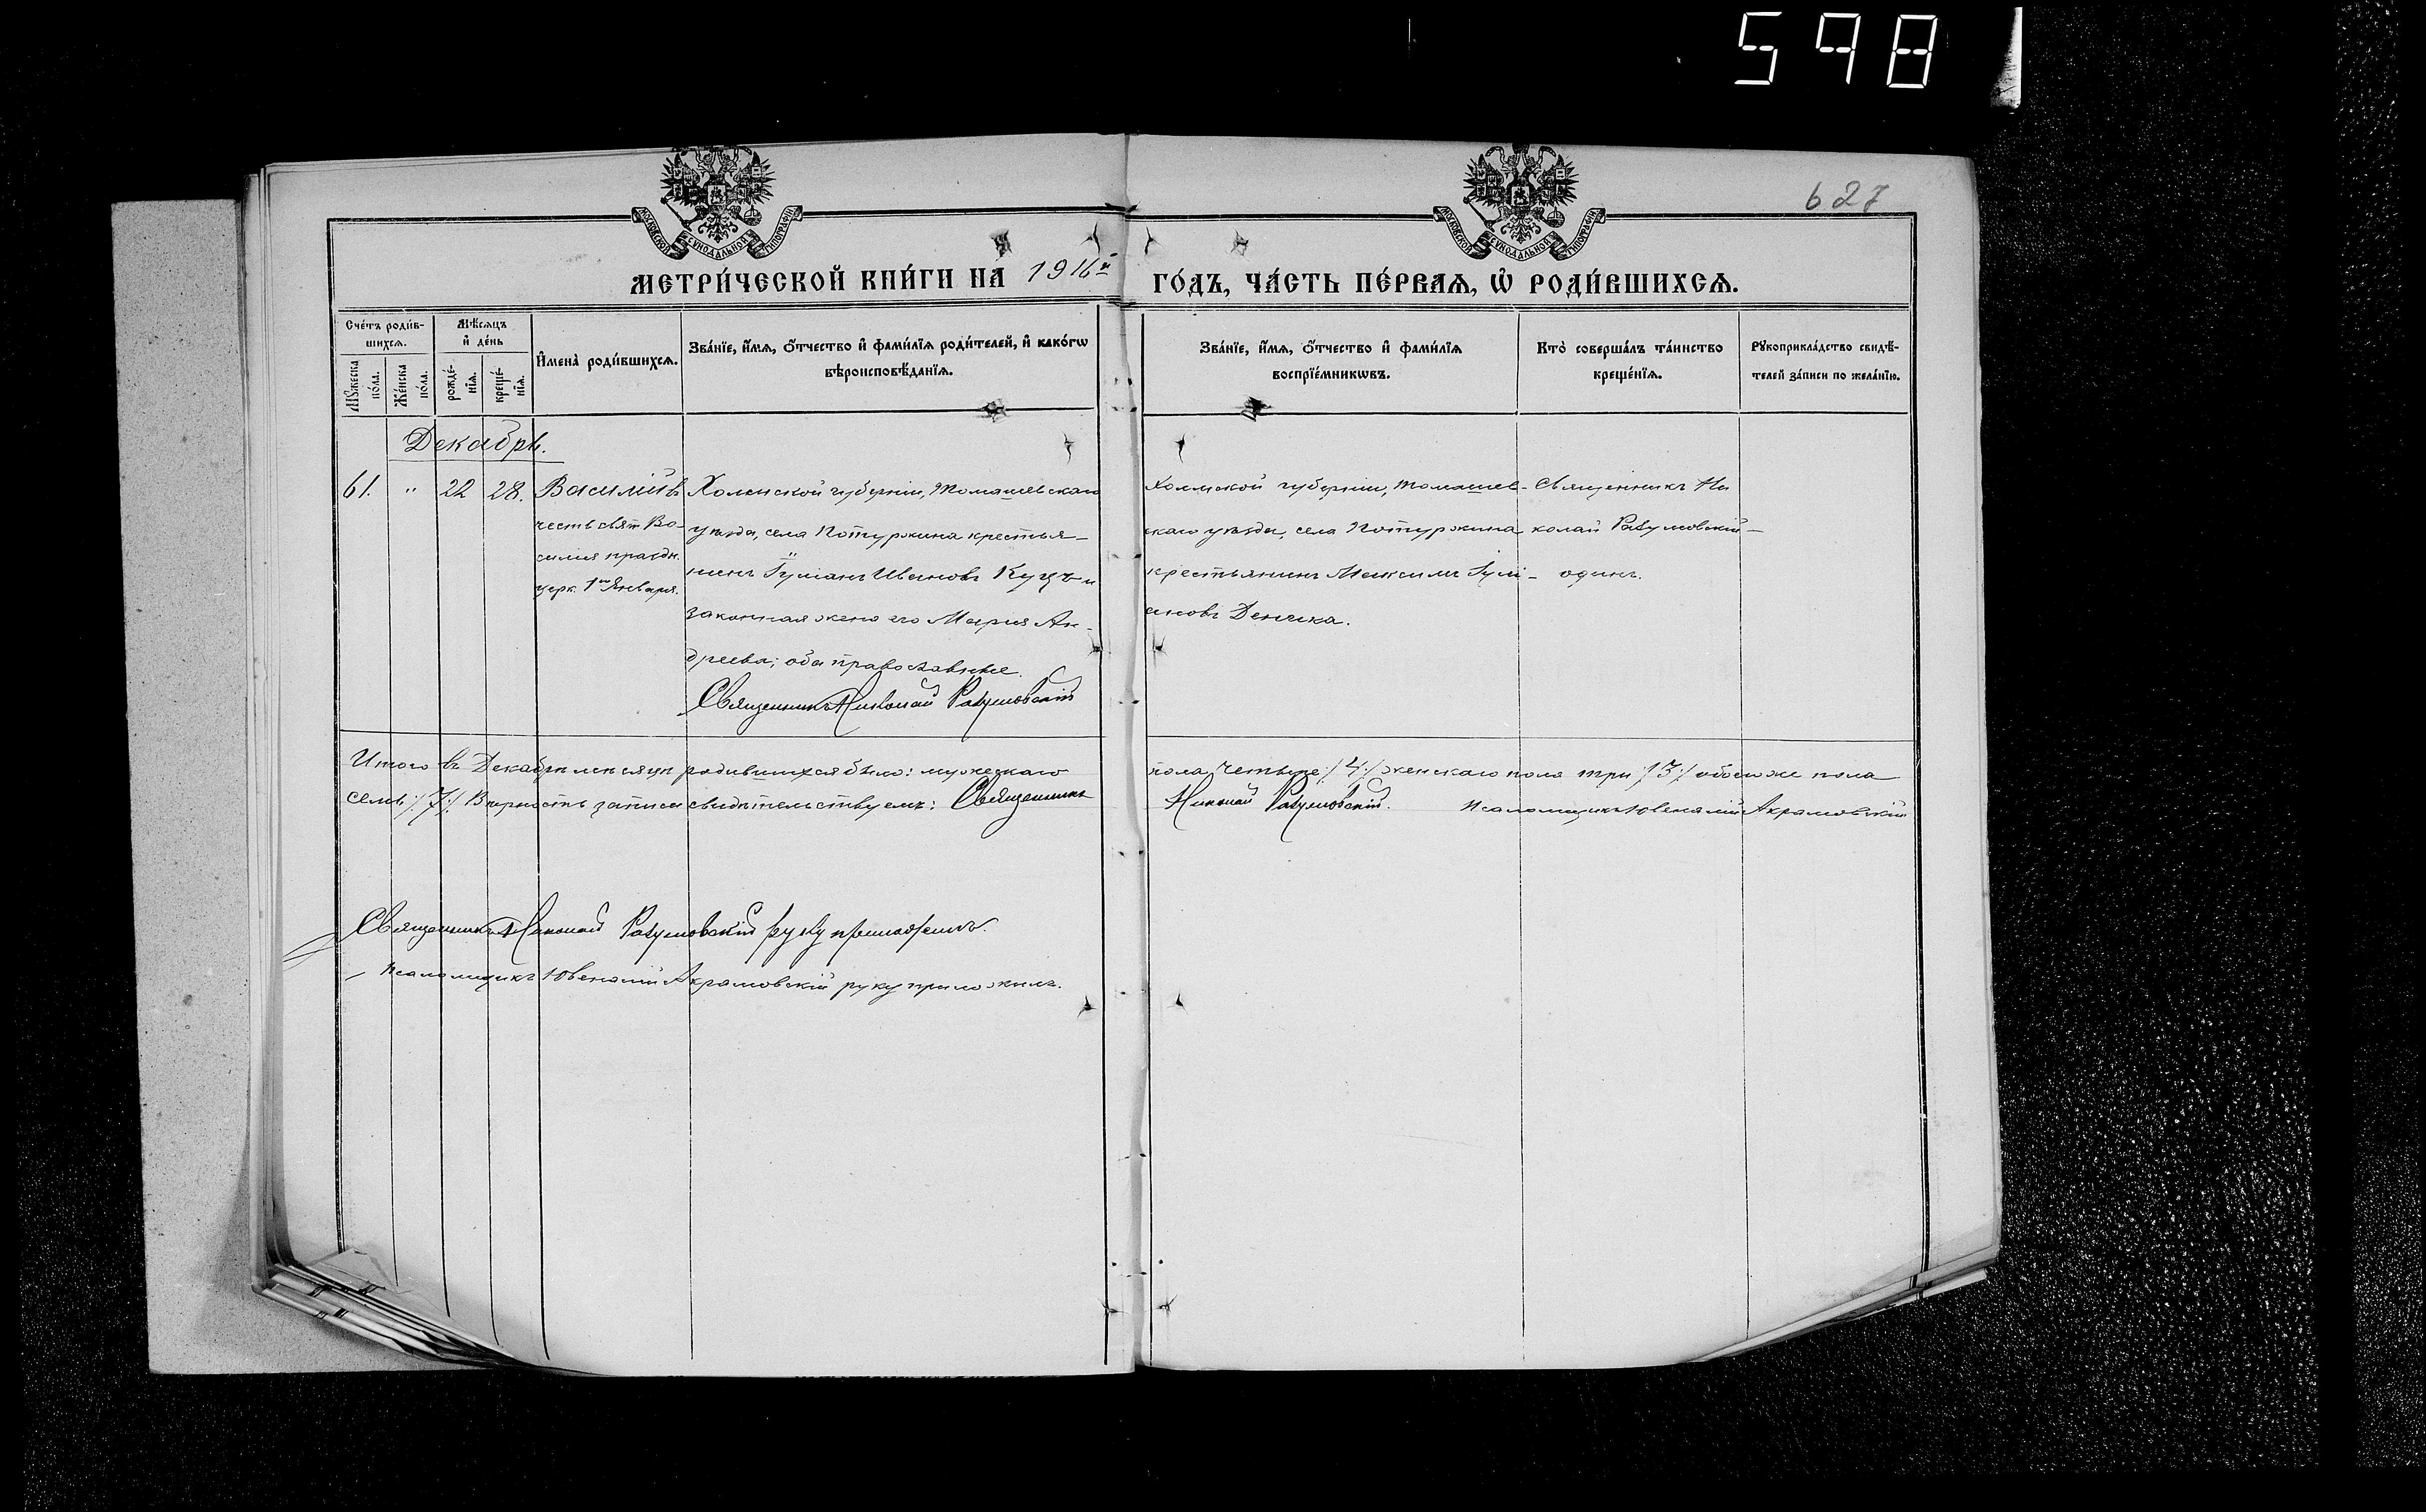 598
627
МОСКОВСКОЙ СѴНОДАЛЬНОЙ ТИПОГРАФІИ
МОСКОВСКОЙ СѴНОДАЛЬНОЙ ТИПОГРАФІИ
МЕТРИ́ЧЕСКОЙ КНИ́ГИ НА 1916й ГО́ДЪ, ЧА́СТЬ ПЕ́РВАѦ, Ѡ҆ РОДИ́ВШИХСѦ.
Сче́тъ роди́в-
шихсѧ.
Мѣ́сѧцъ
и҆ де́нь
Мꙋ́жеска
по́ла.
Же́нска
по́ла.
рожде́-
нїѧ.
креще́-
нїѧ.
И҆мена̀ роди́вшихсѧ.
Зва́нїе, и҆́мѧ, ѻ҆́тчество и҆ фами́лїѧ роди́телей, и҆ како́гѡ
вѣроисповѣ́данїѧ.
Зва́нїе, и҆́мѧ, ѻ҆́тчество и҆ фами́лїѧ
воспрїе́мникѡвъ.
Кто̀ соверша́лъ та́инство
креще́нїѧ.
Рꙋкоприкла́дство свидѣ́-
телей за́писи по жела́нїю.
Декабрь.
61. " 22 28.
Василій въ
честь свят. Ва-
силия праздн.
церк. 1го Января.
Холмской губерніи, Томашевскаго
уѣзда, села Потуржина крестья-
нинъ Гуліанъ Ивановъ Куцъ и
законная жена его Марія Ан-
дреева; оба православные.
Священникъ Николай Разумовскій
Холмской губерніи, Томашев-
скаго уѣзда, села Потуржина
крестьянинъ Максимъ Гулі-
ановъ Денека.
Священникъ Ни
колай Разумовскій -
одинъ.
Итого въ Декабрѣ мѣсяцѣ родившихся было: мужескаго пола четыре /:4:/ женскаго пола три /:3:/ обоего же пола
семь /:7:/. Вѣрность записи свидѣтельствуемъ: Священникъ Николай Разумовскій. Псаломщикъ Ювеналій Акрамовскій
Священникъ Николай Разумовскій руку приложилъ.
Псаломщикъ Ювеналій Акрамовскій руку приложилъ.